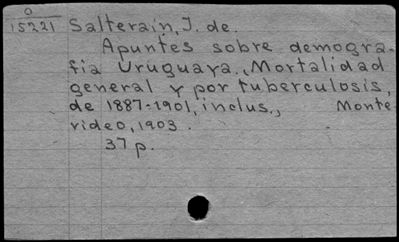 O
15221 Salterain, J. de.
Apuntes sobre demogra-
fia Uruguaya., Mortalidad
general y por tuberculosis,
de 1887-1901, inclus., Monte
video, 1903.
37 p.